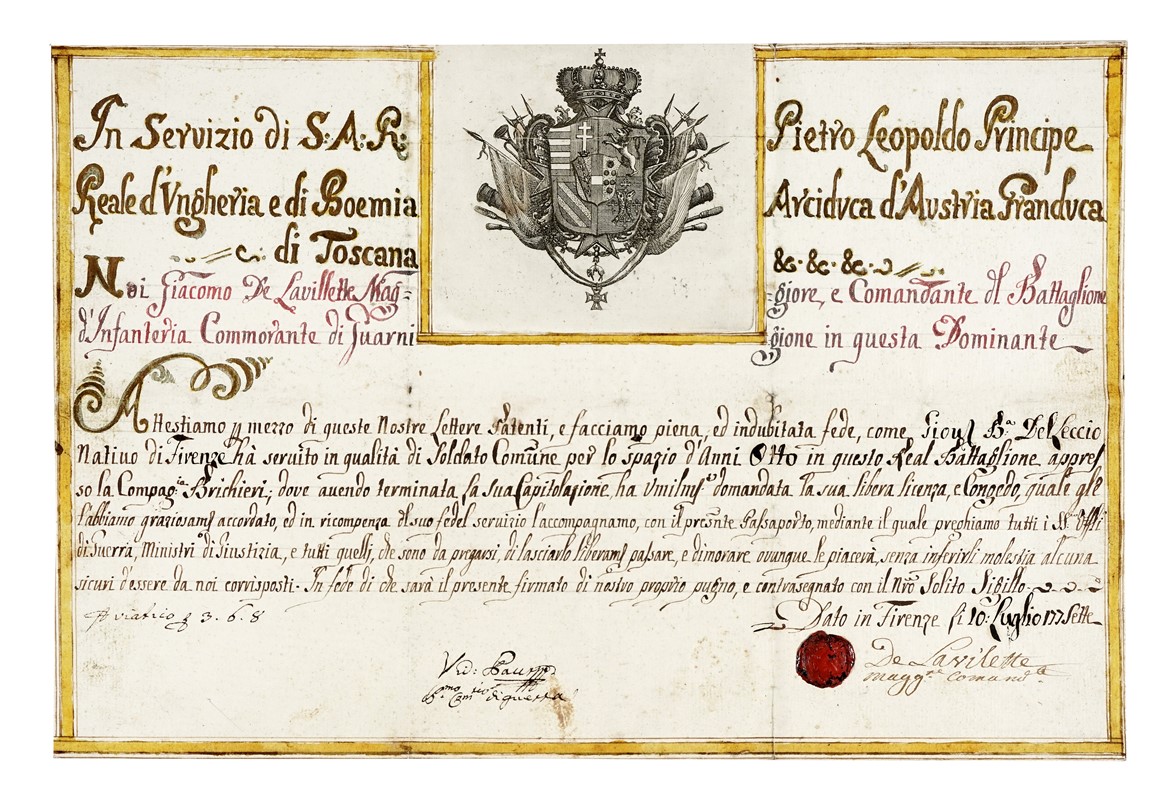 In Servizio di S: A: R: Pietro Leopoldo Principe
Reale d'Vngheria e di Boemia Arciduca d'Austria Granduca
di Toscana &c. &c. &c.
Noi Giacomo De Lavillette Mag= =giore, e Comandante dl Battaglione
d'Infanteria Commorante di Guarni gione in questa Dominante
Attestiamo p mezzo di queste Nostre Lettere Patenti, e facciamo piena, ed indubitata fede, come Del Leccio
Natiuo di Firenze hà seruito in qualità di Soldato Comune per lo spazio d'Anni Otto in questo Real Battaglione appres
so la Compag:ia Brichieri; dove auendo terminata la sua Capitolazione, ha domandata la sua libera licenza, e Congedo, quale gle
l'abbiamo accordato, ed in ricompenza dl suo fedel servizio l'accompagnamo, con il presente Passaporto, mediante il quale preghiamo tutti i SS. Uffli
di Guerra, Ministri di Giustizia, e tutti quelli, che sono da pregarsi, di lasciarlo passare, e dimorare ovunque le piacerà, senza inferirli molestia alcuna
sicuri d'essere da noi corrisposti. In fede di che sarà il presente firmato di nostro proprio pugno, e contrasegnato con il Nro Solito Sibillo
viatico 3. 6. 8
Dato in Firenze li 10: Luglio 177 Sette
De Lavilette
Vid:
maggre Comandte
di guerra